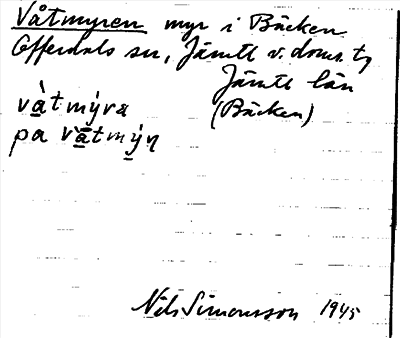 Våtmyren myr i Bäcken
Offerdals sn, Jämtl v. doms. tg
Jämtl län
våtmýra (Bäcken)
pa våtmýn
Nils Simonsson 1945